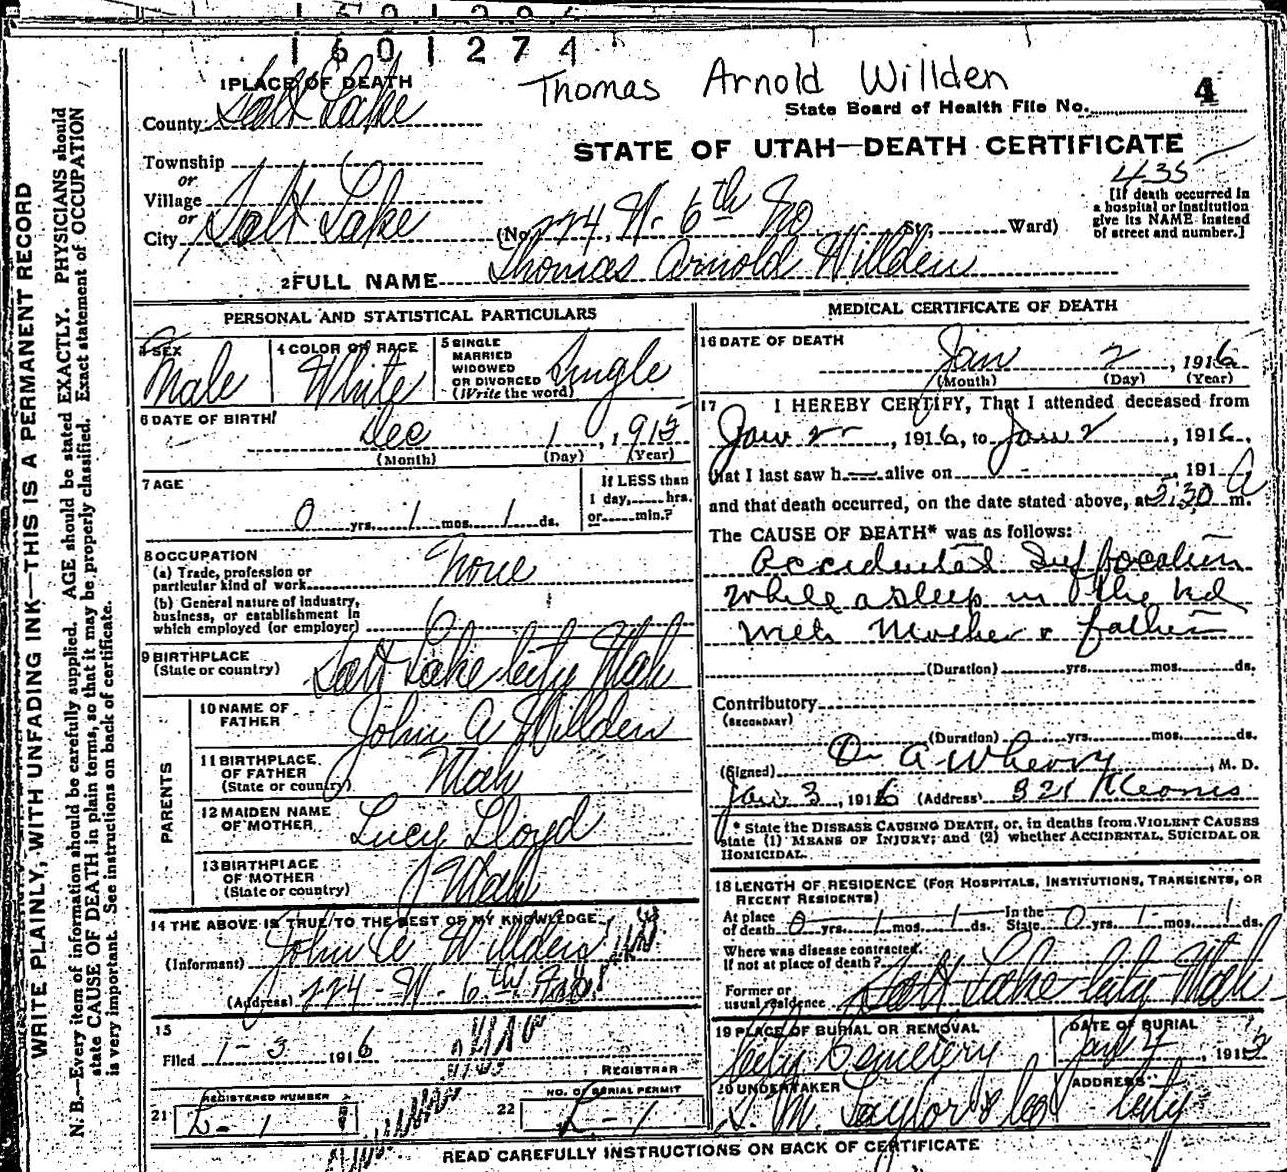 1601274
Thomas Arnold Willden
1 PLACE OF DEATH
State Board of Health File No. 4
County Salt Lake
STATE OF UTAH—DEATH CERTIFICATE
435
Township
or
Village
or
City Salt Lake (No. 224 W. 6th No St., Ward)
[If death occurred in
a hospital or institution
give its NAME instead
of street and number.]
2 FULL NAME Thomas Arnold Willden
WRITE PLAINLY, WITH UNFADING INK—THIS IS A PERMANENT RECORD
N. B.—Every item of information should be carefully supplied. AGE should be stated EXACTLY. PHYSICIANS should
state CAUSE OF DEATH in plain terms, so that it may be properly classified. Exact statement of OCCUPATION
is very important. See instructions on back of certificate.
PERSONAL AND STATISTICAL PARTICULARS
3 SEX
Male
4 COLOR OR RACE
White
5 SINGLE
MARRIED
WIDOWED
OR DIVORCED
(Write the word)
Single
6 DATE OF BIRTH
Dec 1, 1915
(Month) (Day) (Year)
7 AGE
0 yrs. 1 mos. 1 ds.
If LESS than
1 day, hrs.
or min.?
8 OCCUPATION
(a) Trade, profession or
particular kind of work None
(b) General nature of industry,
business, or establishment in
which employed (or employer)
9 BIRTHPLACE
(State or country) Salt Lake City Utah
PARENTS
10 NAME OF
FATHER John A Willden
11 BIRTHPLACE
OF FATHER
(State or country) Utah
12 MAIDEN NAME
OF MOTHER Lucy Lloyd
13 BIRTHPLACE
OF MOTHER
(State or country) Utah
14 THE ABOVE IS TRUE TO THE BEST OF MY KNOWLEDGE
(Informant) John A Willden
(Address) 224 - W - 6th No
15
Filed 1-3 1916
REGISTRAR
21 REGISTERED NUMBER
22 NO. OF BURIAL PERMIT
MEDICAL CERTIFICATE OF DEATH
16 DATE OF DEATH
Jan 2, 1916
(Month) (Day) (Year)
17 I HEREBY CERTIFY, That I attended deceased from
Jan 2, 1916, to Jan 2, 1916,
that I last saw h alive on , 191
and that death occurred, on the date stated above, at 5:30 A m.
The CAUSE OF DEATH* was as follows:
Accidental Suffocation
While asleep in the bed
with Mother & father
(Duration) yrs. mos. ds.
Contributory
(SECONDARY)
(Duration) yrs. mos. ds.
(Signed) , M. D.
Jan 3, 1916 (Address) 321
* State the DISEASE CAUSING DEATH, or, in deaths from VIOLENT CAUSES
state (1) MEANS OF INJURY; and (2) whether ACCIDENTAL, SUICIDAL OR
HOMICIDAL.
18 LENGTH OF RESIDENCE (FOR HOSPITALS, INSTITUTIONS, TRANSIENTS, OR
RECENT RESIDENTS)
At place
of death 0 yrs. 1 mos. 1 ds.
In the
State 0 yrs. 1 mos. 1 ds.
Where was disease contracted
If not at place of death?
Former or
usual residence Salt Lake City Utah
19 PLACE OF BURIAL OR REMOVAL
City Cemetery
DATE OF BURIAL
Jan 4, 191
20 UNDERTAKER
S. M. Taylor & Co
ADDRESS
City
READ CAREFULLY INSTRUCTIONS ON BACK OF CERTIFICATE